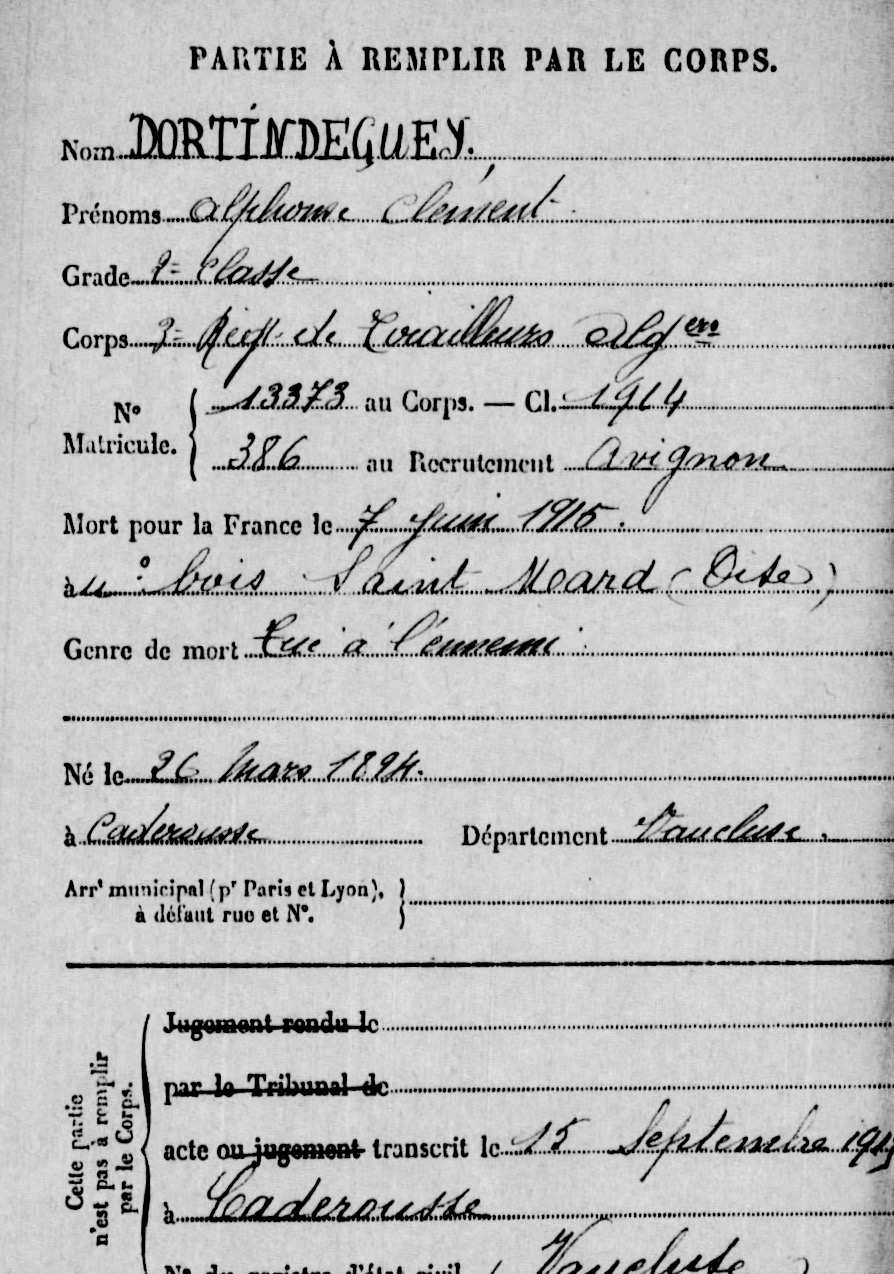 PARTIE À REMPLIR PAR LE CORPS.
Nom DORTINDEGUEY.
Prénoms Alphonse Clément
Grade 2= Classe
Corps 3= Régt de Tirailleurs Algers
13373 au Corps. — Cl. 1914
N° Matricule.
386 au Recrutement Avignon
Mort pour la France le 7 Juin 1915.
au bois Saint Mard (Oise)
Genre de mort Tué à l'ennemi
Né le 26 Mars 1894.
à Caderousse Département Vaucluse.
Arrt municipal (pr Paris et Lyon),
à défaut rue et N°.
Cette partie
n'est pas à remplir
par le Corps.
Jugement rendu le
par le Tribunal de
acte ou jugement transcrit le 15 Septembre 1915
à Caderousse
N° du registre d'état civil Vaucluse